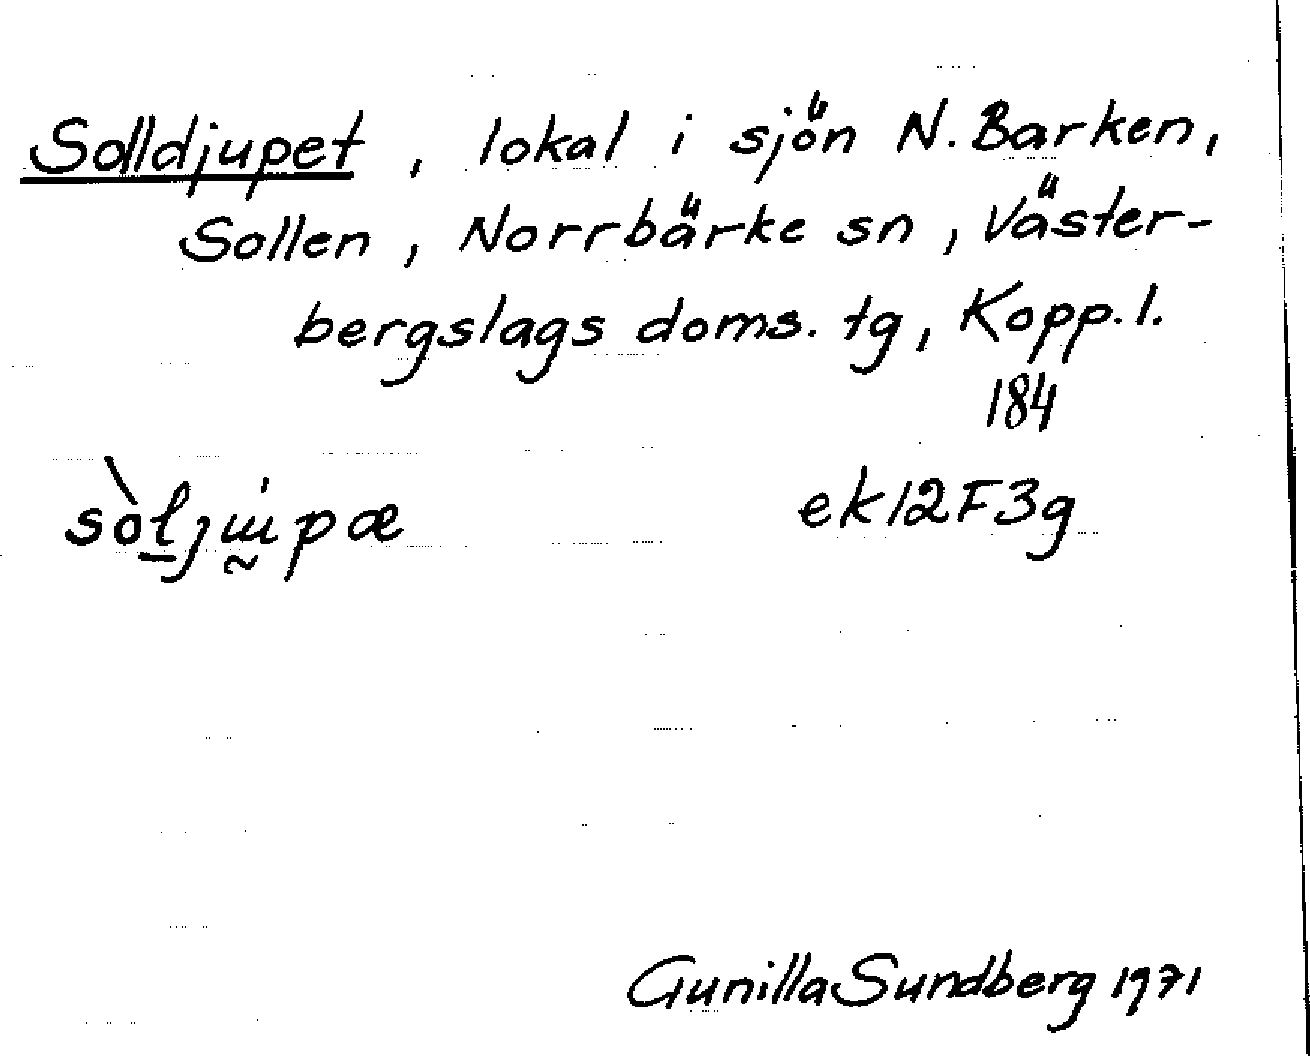 Solldjupet, lokal i sjön N. Barken,
Sollen, Norrbärke sn, Väster-
bergslags doms. tg, Kopp. l.
184
ek12F3g
Gunilla Sundberg 1971